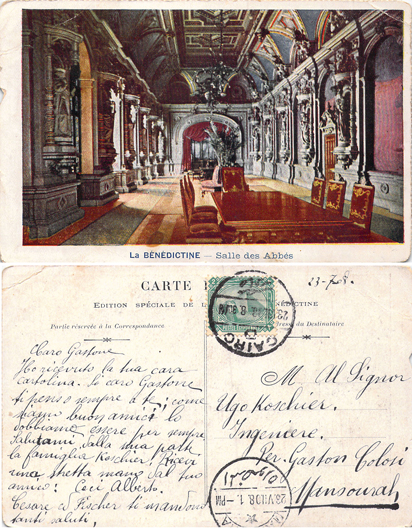 LA BÉNÉDICTINE — Salle des Abbés
CARTE
23-7-8.
EDITION SPÉCIALE DE LA BÉNÉDICTINE
Partie réservée à la Correspondance
Adresse du Destinataire
CAIRO
Caro Gastone
Ho ricevuto la tua cara
Cartolina. Io caro Gastone
ti penso sempre a te, come
siamo buon amici! lo
dobbiamo essere per sempre
Salutami dalla mia parte
la famiglia Koschier! Ricevi
una stretta mano dal tuo
amico! Ceci Alberto.
Cesare e Fischer te mandono
tanti saluti,
M. Al Signor
Ugo Koschier,
Ingeniere.
Per Gaston Colosi
Mansourah,
23 VII 08. 1 - PM